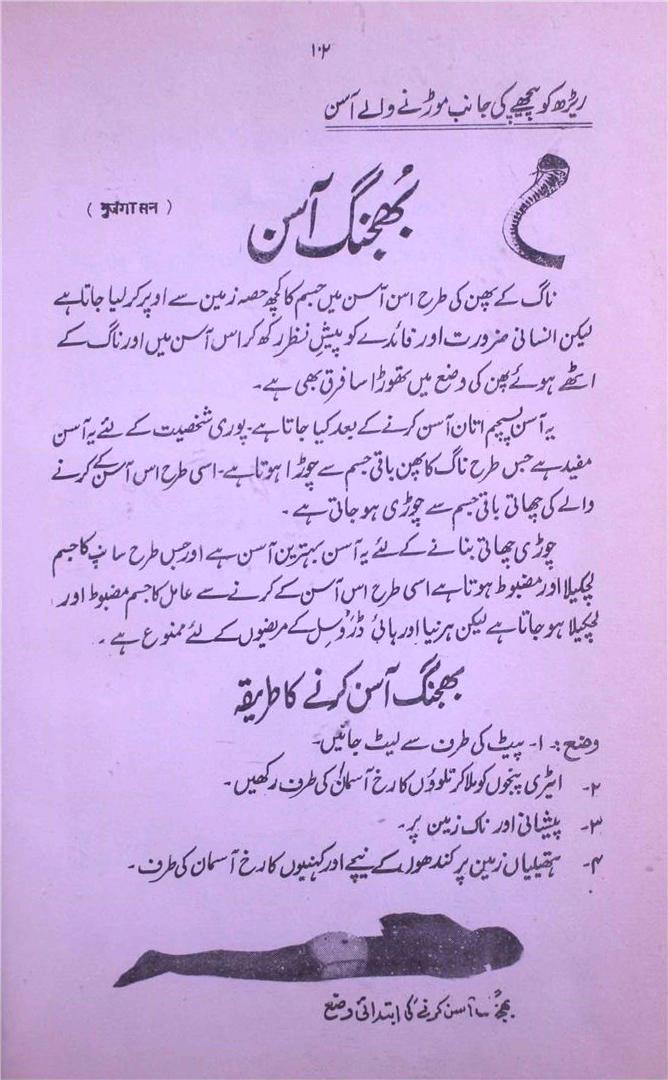 ۱۰۲
ریڑھ کو پیچھے کی جانب موڑنے والے آسن
بھُجنگ آسن
( भुजंगासन )
ناگ کے پھن کی طرح اس آسن میں جسم کا کچھ حصہ زمین سے اوپر کر لیا جاتا ہے
لیکن انسانی ضرورت اور فائدے کو پیشِ نظر رکھ کر اس آسن میں اور ناگ کے
اٹھے ہوئے پھن کی وضع میں تھوڑا سا فرق بھی ہے۔
یہ آسن پسچم اتان آسن کرنے کے بعد کیا جاتا ہے۔ پوری شخصیت کے لئے یہ آسن
مفید ہے جس طرح ناگ کا پھن باقی جسم سے چوڑا ہوتا ہے۔ اسی طرح اس آسن کے کرنے
والے کی چھاتی باقی جسم سے چوڑی ہو جاتی ہے۔
چوڑی چھاتی بنانے کے لئے یہ آسن بہترین آسن ہے اور جس طرح سانپ کا جسم
لچکیلا اور مضبوط ہوتا ہے اسی طرح اس آسن کے کرنے سے عامل کا جسم مضبوط اور
لچکیلا ہو جاتا ہے لیکن ہرنیا اور ہائی ڈروسل کے مریضوں کے لئے ممنوع ہے۔
بھجنگ آسن کرنے کا طریقہ
وضع :۔ ۱۔ پیٹ کی طرف سے لیٹ جائیں۔
۲۔ ایڑی پنجوں کو ملا کر تلووں کا رخ آسمان کی طرف رکھیں۔
۳۔ پیشانی اور ناک زمین پر۔
۴۔ ہتھیلیاں زمین پر کندھوں کے نیچے اور کہنیوں کا رخ آسمان کی طرف۔
آسن کرنے کی ابتدائی وضع